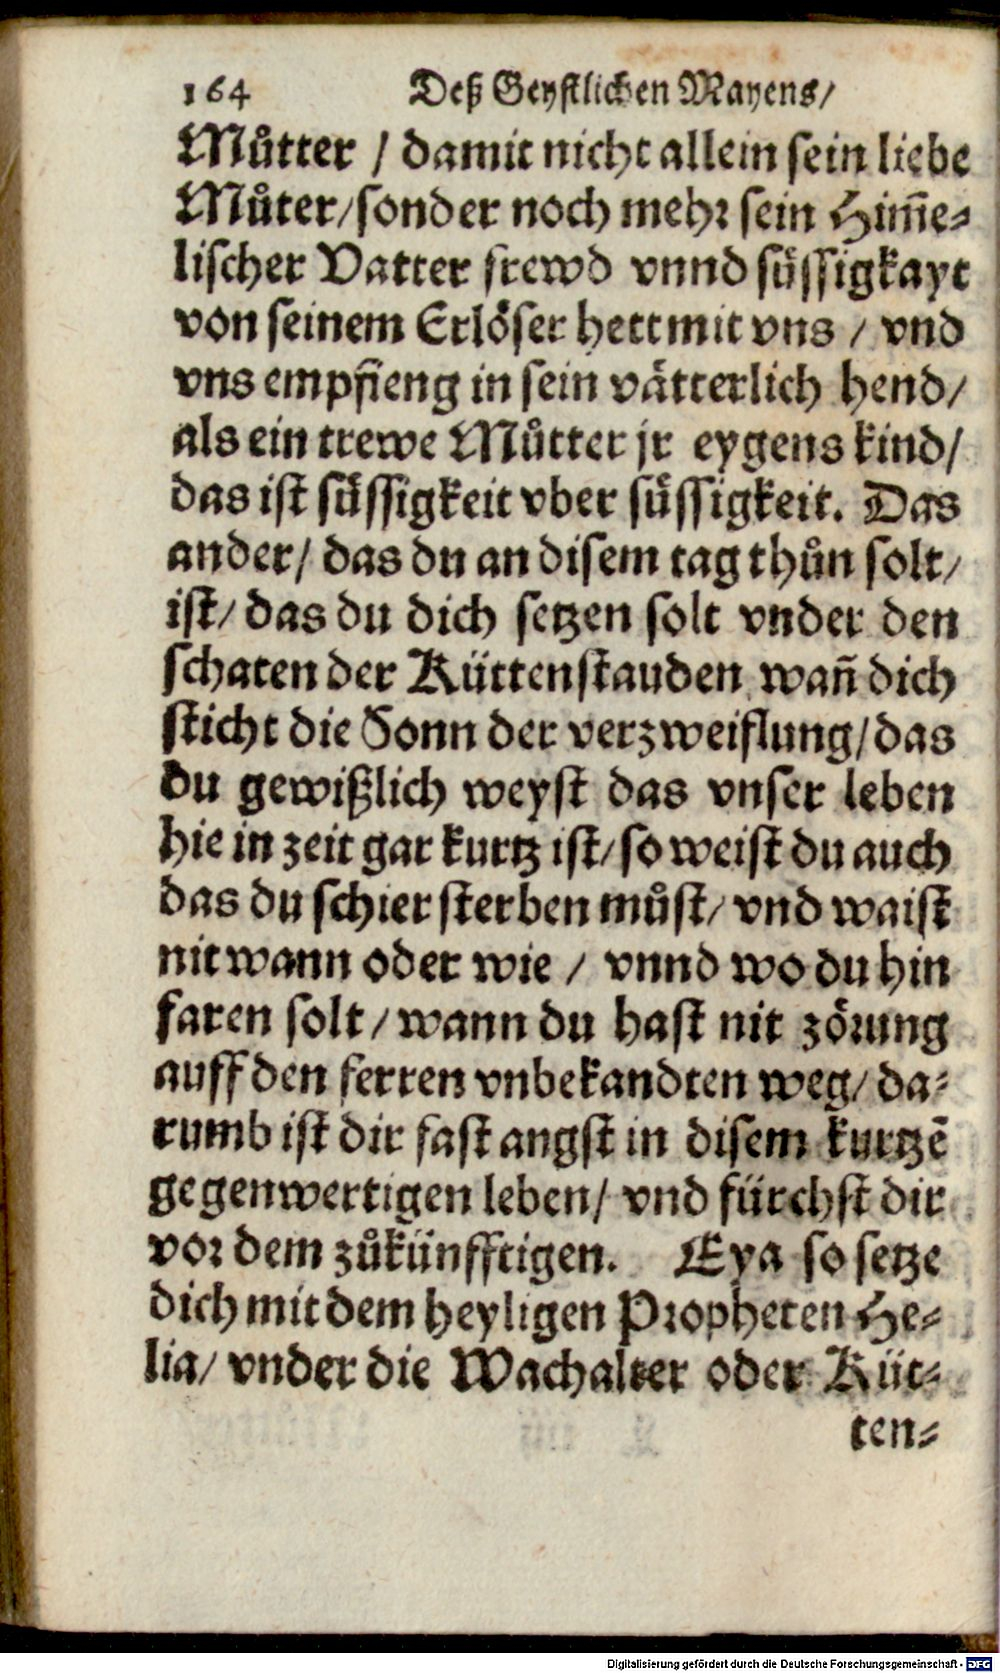 164 Deß Geystlichen Mayens/
Můtter / damit nicht allein sein liebe
Můter/sonder noch mehr sein Him̃e-
lischer Vatter frewd vnnd süssigkayt
von seinem Erlöser hett mit vns / vnd
vns empfieng in sein vätterlich hend/
als ein trewe Můtter jr eygens kind/
das ist süssigkeit vber süssigkeit. Das
ander/ das du an disem tag thůn solt/
ist/ das du dich setzen solt vnder den
schaten der Küttenstauden wañ dich
sticht die Sonn der verzweiflung/das
du gewißlich weyst das vnser leben
hie in zeit gar kurtz ist/so weist du auch
das du schier sterben můst/ vnd waist
nit wann oder wie / vnnd wo du hin
faren solt / wann du hast nit zörung
auff den ferren vnbekandten weg/ da-
rumb ist dir fast angst in disem kurtzē
gegenwertigen leben/ vnd fürchst dir
vor dem zůkünfftigen. Eya so setze
dich mit dem heyligen Propheten He-
lia/ vnder die Wachalter oder Küt-
ten-
Digitalisierung gefördert durch die Deutsche Forschungsgemeinschaft - DFG